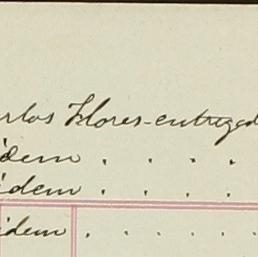 rlos Flores-entregad
idem . . . .
idem . . . .
idem . . . . .